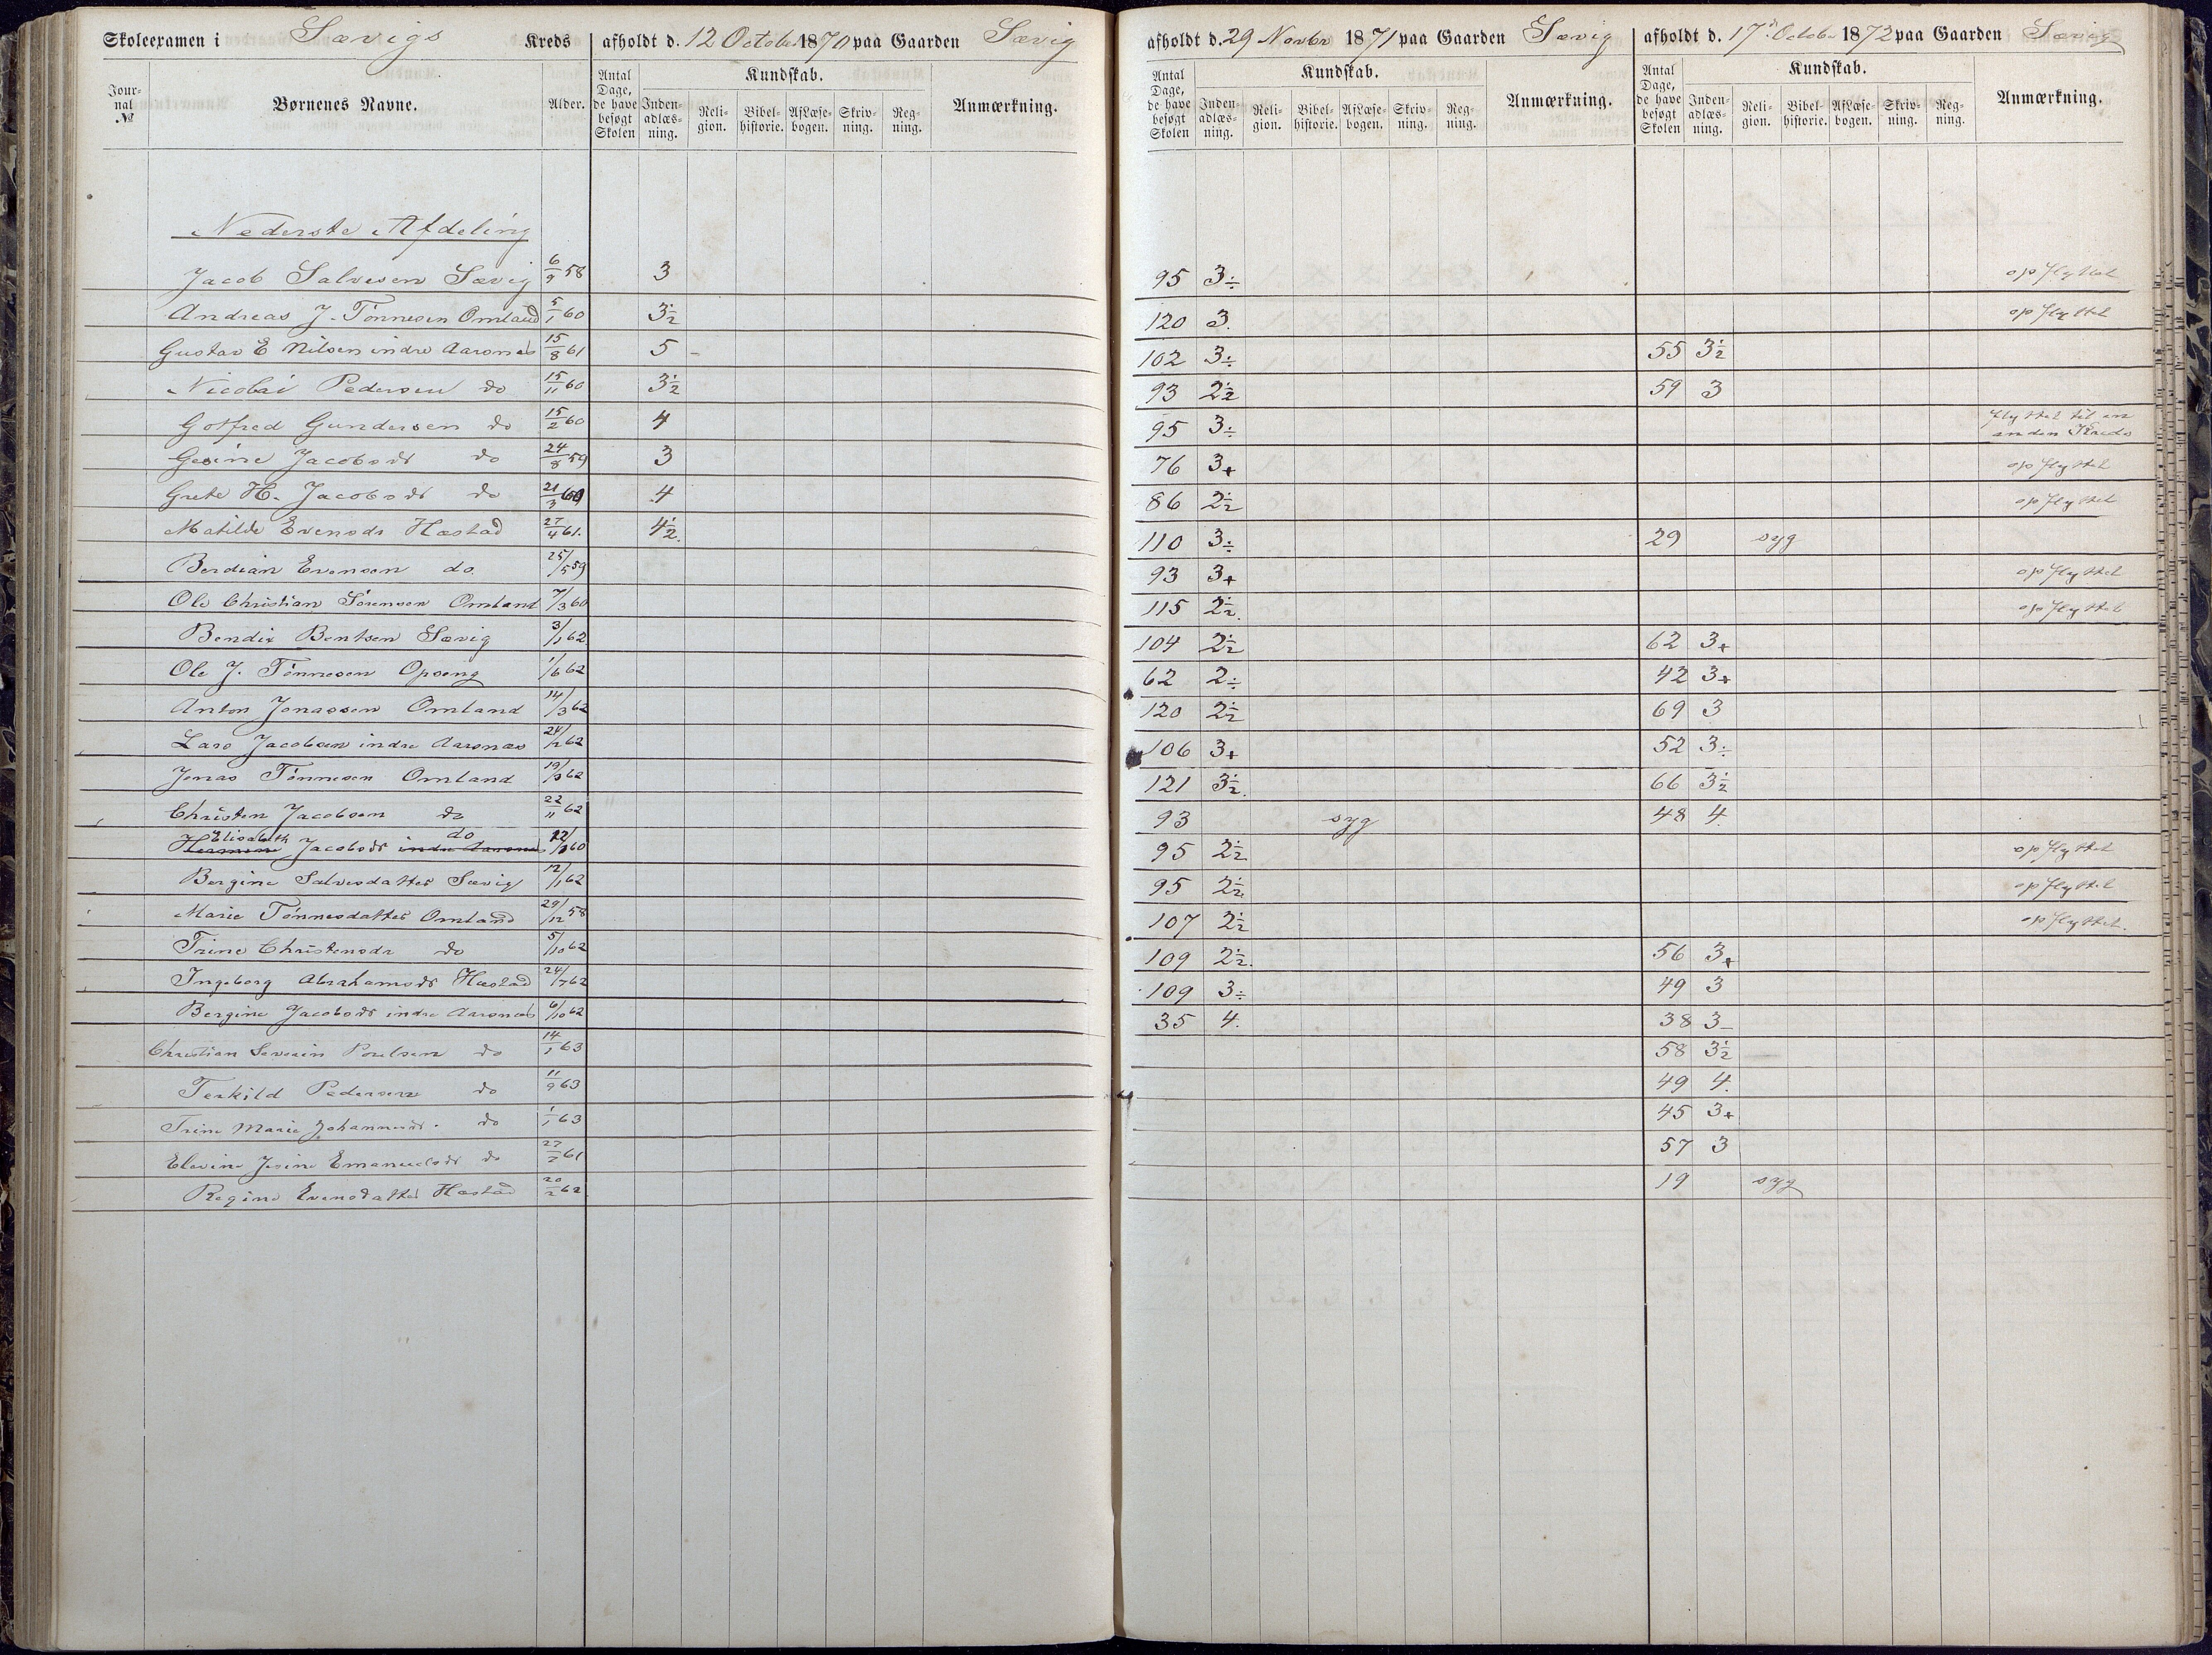 Skoleexamen i Sævigs Kreds afholdt d. 12 October 1870 paa Gaarden Sævig afholdt d. 29 Novbr 1871 paa Gaarden Sævig afholdt d. 17d October 1872 paa Gaarden Sævig
Jour-nal № Børnenes Navne. Alder. Antal Dage, de have besøgt Skolen Kundskab. Inden-adlæs-ning. Reli-gion. Bibel-historie. AfLæse-bogen. Skriv-ning. Reg-ning. Anmærkning. Antal Dage, de have besøgt Skolen Kundskab. Inden-adlæs-ning. Reli-gion. Bibel-historie. AfLæse-bogen. Skriv-ning. Reg-ning. Anmærkning. Antal Dage, de have besøgt Skolen Kundskab. Inden-adlæs-ning. Reli-gion. Bibel-historie. AfLæse-bogen. Skriv-ning. Reg-ning. Anmærkning.
Nederste Afdeling
Jacob Salvesen Sævig 6/9 58 3 95 3÷ opflyttet
Andreas J. Tønnesen Omland 5/1 60 3½ 120 3. opflyttet
Gustav E Nilsen indre Aarsnæs 15/8 61 5 - 102 3÷ 55 3½
Nicolai Pedersen do 15/11 60 3½ 93 2½ 59 3
Gotfred Gundersen do 15/2 60 4 95 3÷ flyttet til en anden Kreds
Gesine Jacobsdr do 24/8 59 3 76 3+ opflyttet
Grete H. Jacobsdr do 21/3 60 4 86 2½ opflyttet
Matilde Evensdr Hæstad 27/4 61. 4½. 110 3÷ 29 syg
Berdian Evensen do. 25/5 59 93 3+ opflyttet
Ole Christian Sørensen Omland 7/3 60 115 2½. opflyttet
Bendix Bentsen Sævig 3/1 62 104 2½ 62 3+
Ole J. Tønnesen Opseng 1/6 62 62 2÷ 42 3+
Anton Jonassen Omland 14/3 62 120 2½ 69 3
Lars Jacobsen indre Aarsnæs 24/2 62 106 3+ 52 3÷
Jonas Tønnesen Omland 19/9 62 121 3½. 66 3½
Christen Jacobsen do 22/11 62 93 syg 48 4.
Elisabeth Jacobsdr do 60 95 2½ opflyttet
Bergine Salvesdatter Sævig 12/1 62 95 2½ opflyttet
Marie Tønnesdatter Omland 29/12 58 107 2½ opflyttet.
Trine Christensdr do 5/10 62 109 2½. 56 3+
Ingeborg Abrahamsdr Hæstad 24/7 62 109 3÷ 49 3
Bergine Jacobsdr indre Aarsnæs 6/10 62 35 4. 38 3-
Christian Severin Poulsen do 14/1 63 58 3½
Terkild Pedersen do 11/9 63 49 4.
Trine Marie Johannesdr. do 1/1 63 45 3+
Elevine Jesine Emanuelsdr do 27/2 61 57 3
Regine Evensdatter Hæstad 20/2 62 19 syg